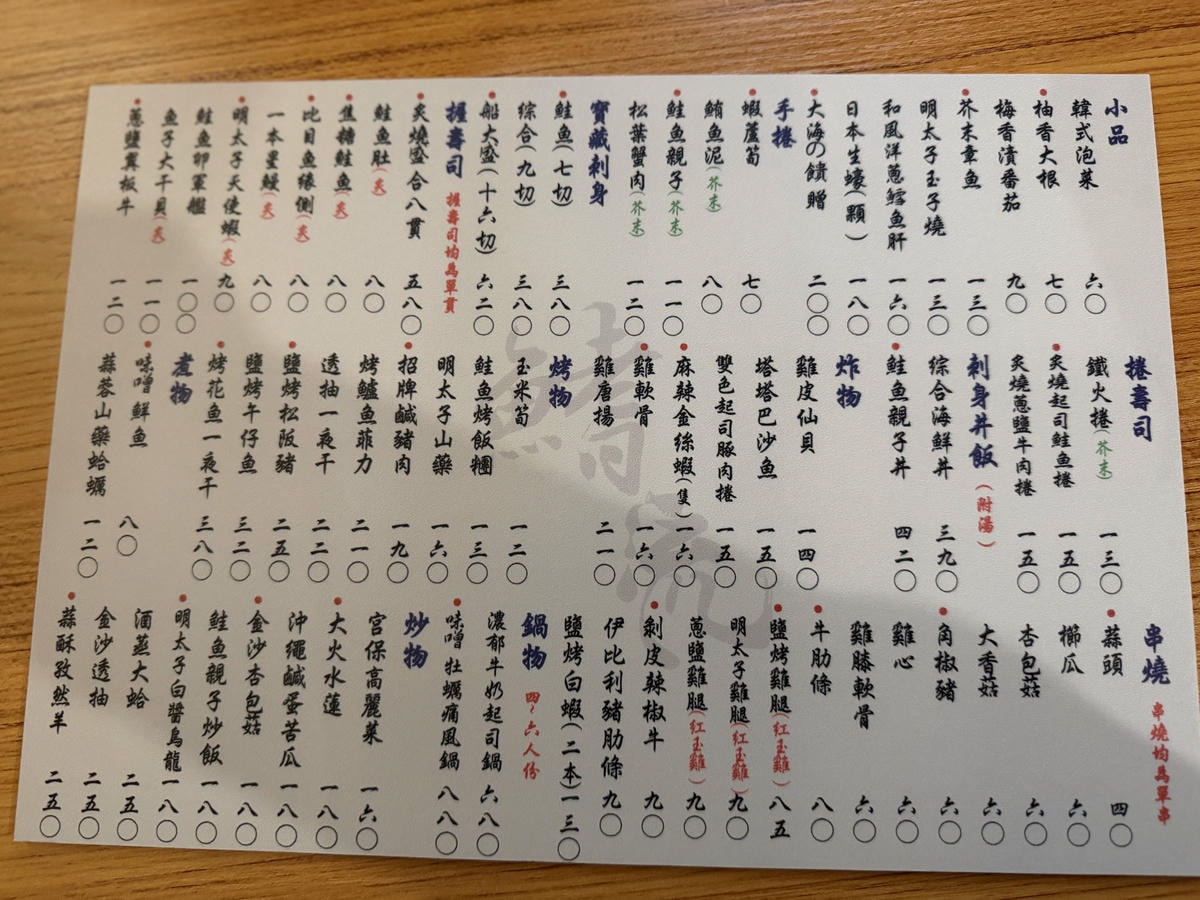 小品
韓式泡菜 六〇
柚香大根 七〇
梅香漬番茄 九〇
芥末章魚 一三〇
明太子玉子燒 一三〇
和風洋蔥鱈魚肝 一六〇
日本生蠔(顆) 一八〇
大海の饋贈 二〇〇
手捲
蝦蘆筍 七〇
鮪魚泥(芥末) 八〇
鮭魚親子(芥末) 一一〇
松葉蟹肉(芥末) 一二〇
寶藏刺身
鮭魚(七切) 三八〇
綜合(九切) 三八〇
船大盛(十六切) 六二〇
握壽司 握壽司均為單貫
炙燒盛合八貫 五八〇
鮭魚肚(炙) 八〇
焦糖鮭魚(炙) 八〇
比目魚緣側(炙) 八〇
一本星鰻(炙) 八〇
明太子天使蝦(炙) 九〇
鮭魚卵軍艦 一〇〇
魚子大干貝(炙) 一一〇
蔥鹽翼板牛 一二〇
捲壽司
鐵火捲(芥末) 一三〇
炙燒起司鮭魚捲 一五〇
炙燒蔥鹽牛肉捲 一五〇
刺身丼飯(附湯)
綜合海鮮丼 三九〇
鮭魚親子丼 四二〇
炸物
雞皮仙貝 一四〇
塔塔巴沙魚 一五〇
雙色起司豚肉捲 一五〇
麻辣金絲蝦(隻) 六〇
雞軟骨 一六〇
雞唐揚 二一〇
烤物
玉米筍 一二〇
鮭魚烤飯糰 一三〇
明太子山藥 一六〇
招牌鹹豬肉 一九〇
烤鱸魚菲力 二一〇
透抽一夜干 二二〇
鹽烤松阪豬 二五〇
鹽烤午仔魚 三二〇
烤花魚一夜干 三八〇
煮物
味噌鮮魚 八〇
蒜蓉山藥蛤蠣 一二〇
串燒 串燒均為單串
蒜頭 四〇
櫛瓜 六〇
杏包菇 六〇
大香菇 六〇
角椒豬 六〇
雞心 六〇
雞膝軟骨 六〇
牛肋條 八〇
鹽烤雞腿(紅玉雞) 八五
明太子雞腿(紅玉雞) 九〇
蔥鹽雞腿(紅玉雞) 九〇
剝皮辣椒牛 九〇
伊比利豬肋條 九〇
鹽烤白蝦(二本) 一三〇
鍋物 四~六人份
濃郁牛奶起司鍋 六八〇
味噌牡蠣痛風鍋 八八〇
炒物
宮保高麗菜 一六〇
大火水蓮 一八〇
沖繩鹹蛋苦瓜 一八〇
金沙杏包菇 一八〇
鮭魚親子炒飯 一八〇
明太子白醬烏龍 一八〇
酒蒸大蛤 二五〇
金沙透抽 二五〇
蒜酥孜然羊 二五〇